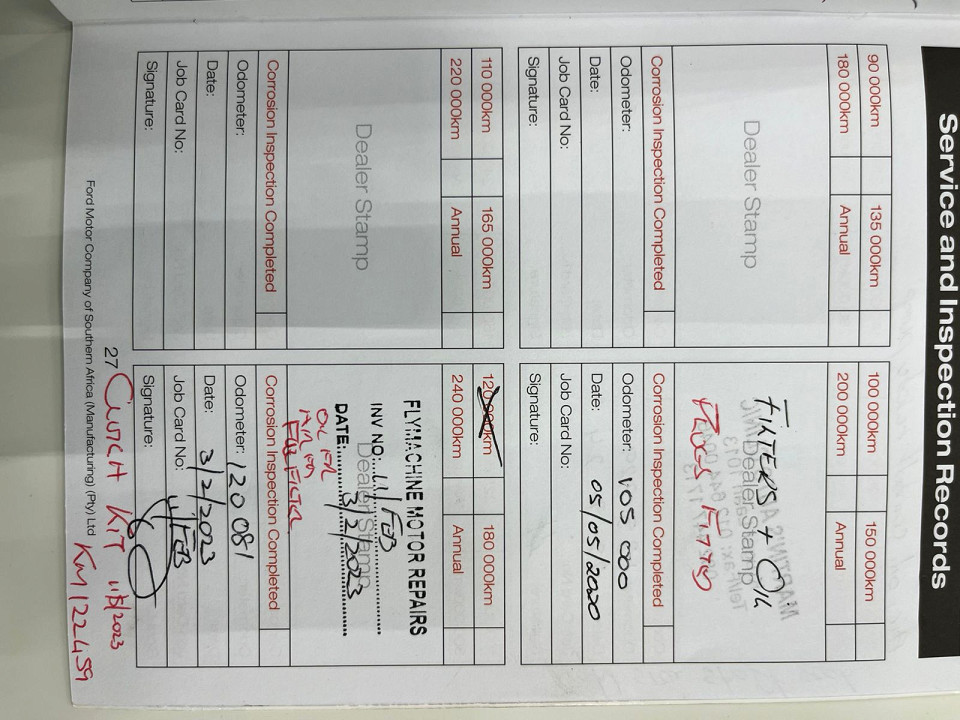 Service and Inspection Records
90 000km
135 000km
180 000km
Annual
Dealer Stamp
Corrosion Inspection Completed
Odometer:
Date:
Job Card No:
Signature:
100 000km
150 000km
200 000km
Annual
FILTERS + OIL
Dealer Stamp
Corrosion Inspection Completed
Odometer: 105 000
Date: 05/05/2020
Job Card No:
Signature:
110 000km
165 000km
220 000km
Annual
Dealer Stamp
Corrosion Inspection Completed
Odometer:
Date:
Job Card No:
Signature:
120 000km
180 000km
240 000km
Annual
FLYMACHINE MOTOR REPAIRS
INV NO: 11/FEB
Dealer Stamp
DATE: 3/2/2023
Corrosion Inspection Completed
Odometer: 120 081
Date: 3/2/2023
Job Card No: 11/FEB
Signature:
27
CLUTCH KIT 11/5/2023 KM 122459
Ford Motor Company of Southern Africa (Manufacturing) (Pty) Ltd